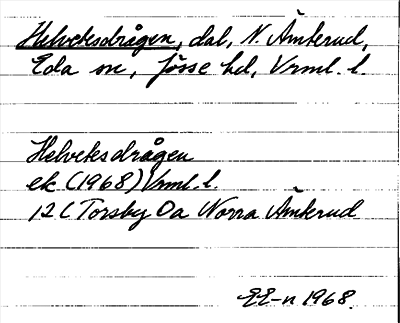 Helvetesdrågen, dal, N. Åmterud,
Eda sn, Jösse hd, Vrml. l.
Helvetesdrågen
ek (1968) Vrml. l.
12 C Torsby 0a Norra Åmterud
EE-n 1968.